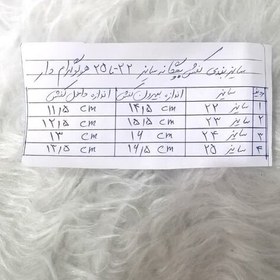 سایزبندی کفش بچگانه سایز ۲۲ تا ۲۵ هولوگرام دار
ردیف سایز اندازه بیرون کفش اندازه داخل کفش
۱ سایز ۲۲ ۱۴,۵ cm ۱۱,۵ cm
۲ سایز ۲۳ ۱۵,۵ cm ۱۲,۵ cm
۳ سایز ۲۴ ۱۶ cm ۱۳ cm
۴ سایز ۲۵ ۱۶,۵ cm ۱۳,۵ cm